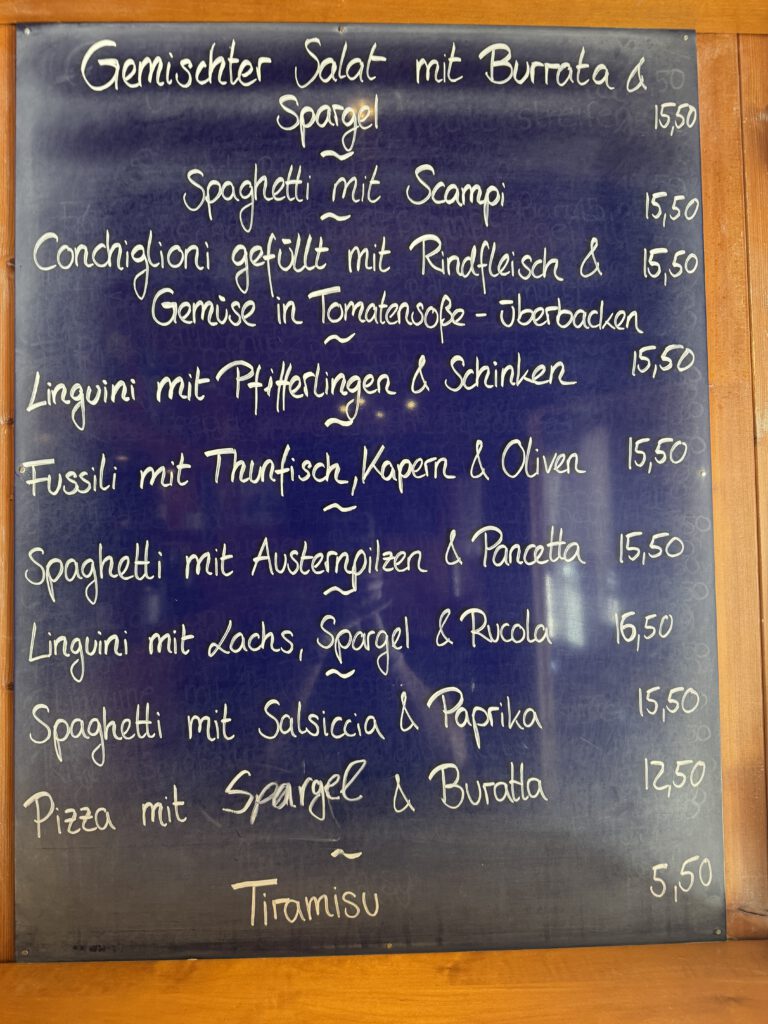 Gemischter Salat mit Burrata &
Spargel 15,50
~
Spaghetti mit Scampi 15,50
~
Conchiglioni gefüllt mit Rindfleisch & 15,50
Gemüse in Tomatensoße - überbacken
~
Linguini mit Pfifferlingen & Schinken 15,50
~
Fussili mit Thunfisch, Kapern & Oliven 15,50
~
Spaghetti mit Austernpilzen & Pancetta 15,50
~
Linguini mit Lachs, Spargel & Rucola 16,50
~
Spaghetti mit Salsiccia & Paprika 15,50
Pizza mit Spargel & Buratta 12,50
~
Tiramisu 5,50